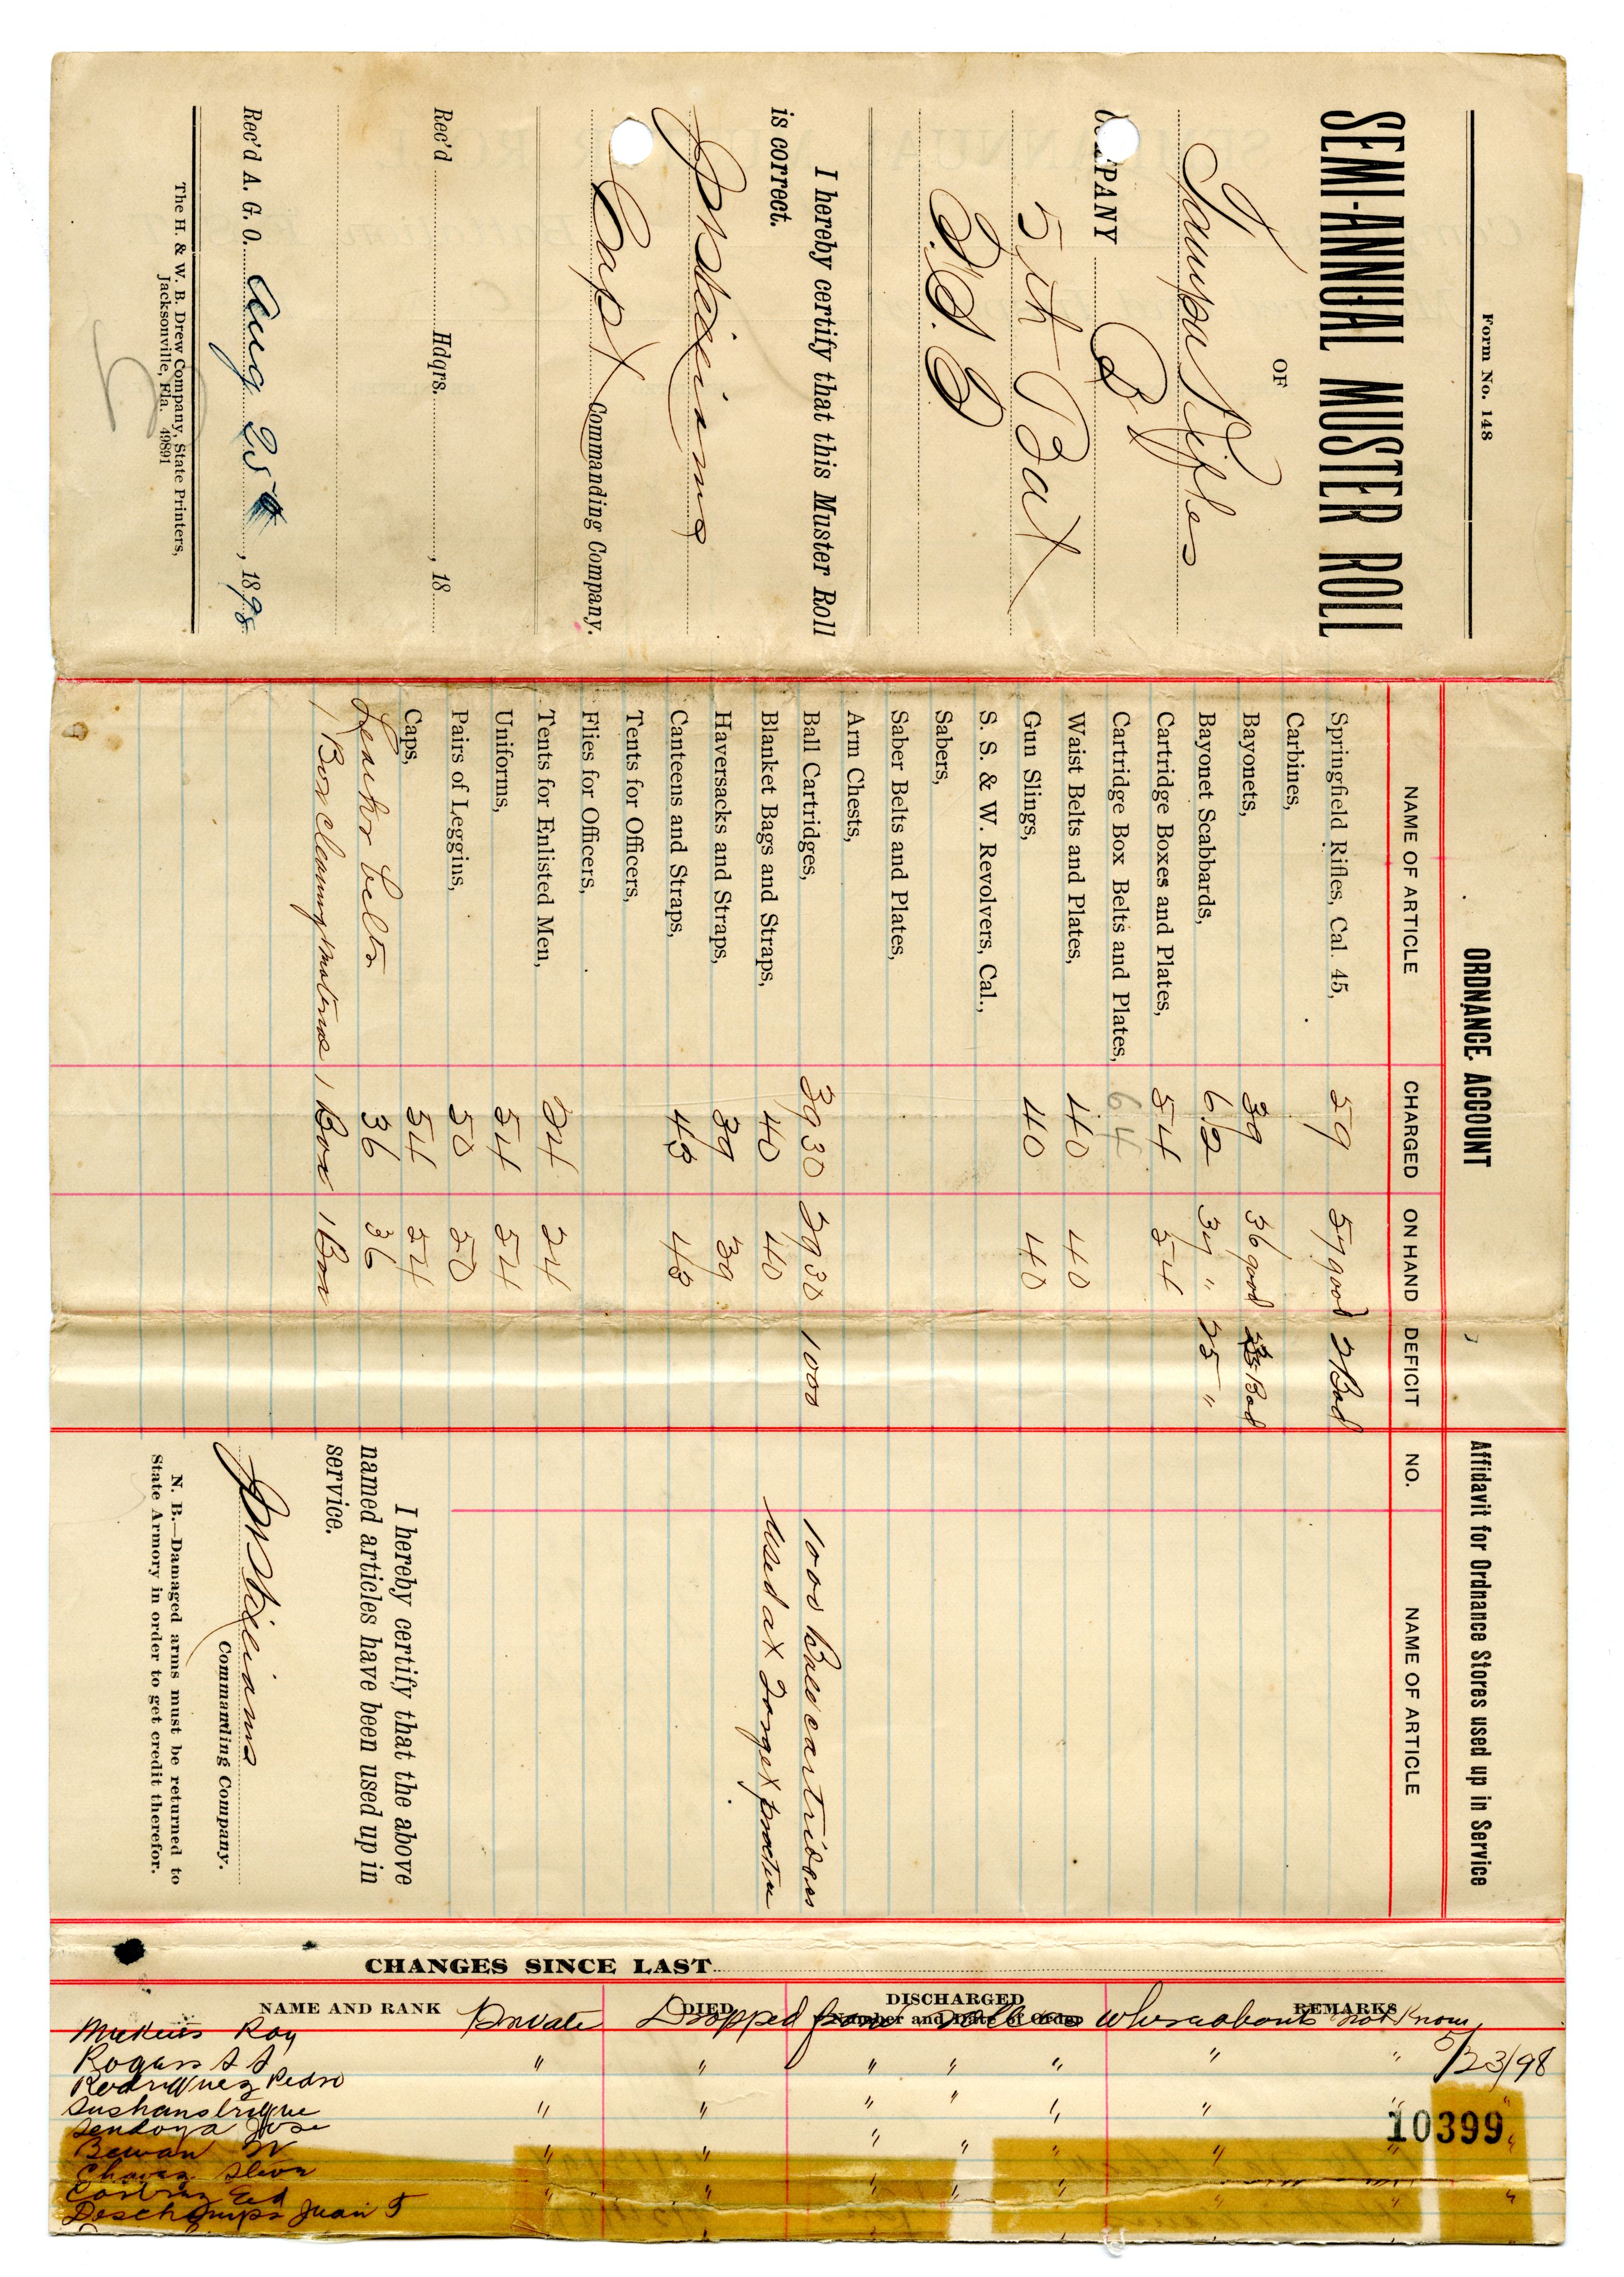 Form No. 148
SEMI-ANNUAL MUSTER ROLL
OF
Tampa Rifles
COMPANY B
5th Bat
I hereby certify that this Muster Roll
is correct.
Capt Commanding Company.
Rec'd Hdqrs. , 18
Rec'd A. G. O. Aug 25 , 1898
The H. & W. B. Drew Company, State Printers,
Jacksonville, Fla. 49891
ORDNANCE ACCOUNT
NAME OF ARTICLE CHARGED ON HAND DEFICIT
Springfield Rifles, Cal. 45, 59 57 good 2 Bad
Carbines,
Bayonets, 39 36 good Bad
Bayonet Scabbards, 62 37 " 25 "
Cartridge Boxes and Plates, 54 54
Cartridge Box Belts and Plates, 64
Waist Belts and Plates, 40 40
Gun Slings, 40 40
S. S. & W. Revolvers, Cal.,
Sabers,
Saber Belts and Plates,
Arm Chests,
Ball Cartridges, 3930 2930 1000
Blanket Bags and Straps, 40 40
Haversacks and Straps, 39 39
Canteens and Straps, 43 43
Tents for Officers,
Flies for Officers,
Tents for Enlisted Men, 24 24
Uniforms, 54 54
Pairs of Leggins, 50 50
Caps, 54 54
Leather belts 36 36
1 Box Cleaning Material 1 Box 1 Box
Affidavit for Ordnance Stores used up in Service
NO. NAME OF ARTICLE
1000 Ball cartridges
used at Target practice
I hereby certify that the above
named articles have been used up in
service.
Commanding Company.
N. B.—Damaged arms must be returned to
State Armory in order to get credit therefor.
CHANGES SINCE LAST
NAME AND RANK DIED DISCHARGED Number and Date of Order REMARKS
Roy Private Dropped from whereabouts not Know
Rogers " " " " " " " 5/23/98
Rodriguez Pedro
" " " " " " "
Sendoya Jose
Bewan W " " " " " " "
Chavez
Ed " " " " " " "
Deschamps Juan F
10399